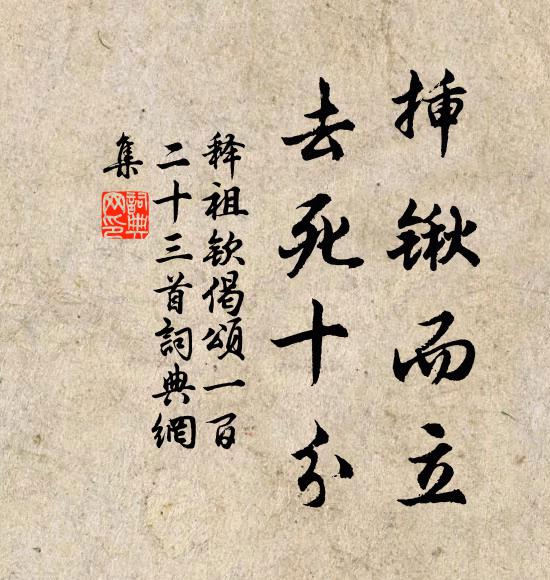 挿锹而立
去死十分
释祖钦偈頌一百
二十三首詞典網
集
詞典
网印